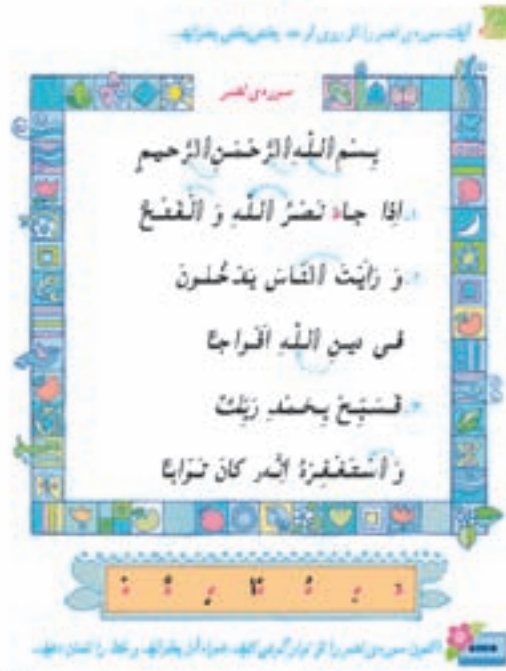 آیات سوره‌ی نصر را از روی لوحه بخش‌بخش بخوانید.
سوره‌ی نصر
بِسْمِ اللّٰهِ الرَّحْمٰنِ الرَّحیمِ
۱. اِذا جاءَ نَصْرُ اللّٰهِ وَ الْفَتْحُ
۲. وَ رَاَیْتَ النّاسَ یَدْخُلونَ
فی دینِ اللّٰهِ اَفْواجًا
۳. فَسَبِّحْ بِحَمْدِ رَبِّکَ
وَ اسْتَغْفِرْهُ اِنَّهُ کانَ تَوّابًا
اکنون سوره‌ی نصر را از نوار گوش کنید، همراه آن بخوانید و خط را نشان دهید.